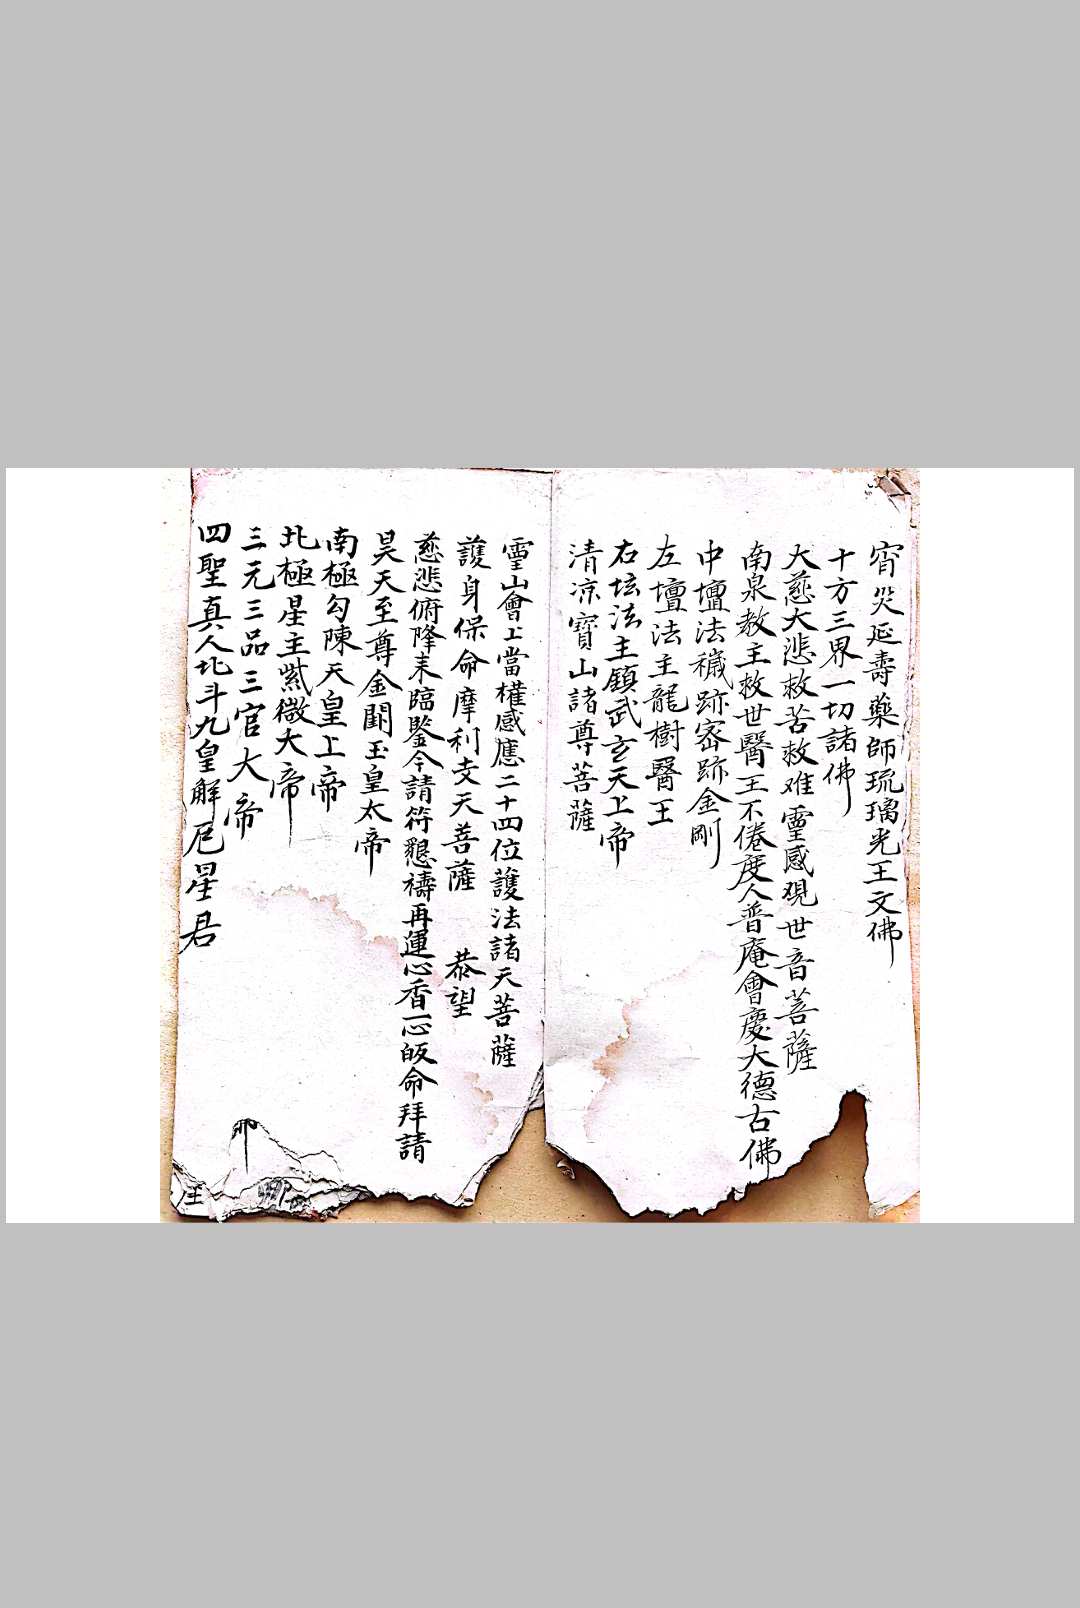 宵災延壽藥師琉璃光王文佛
十方三界一切諸佛
大慈大悲救苦救难灵感觀世音菩薩
南泉教主救世醫王不倦度人普庵會慶大德古佛
中壇法穢跡宻跡金剛
左壇法主龍樹醫王
右坛法主鎮武玄天上帝
清凉寶山諸尊菩薩
霊山會上當權感應二十四位護法諸天菩薩
護身保命摩利支天菩薩 恭望
慈悲俯降来臨鑒今請符懇禱再運心香一心皈命拜請
昊天至尊金闕玉皇太帝
南極勾陳天皇上帝
北極星主紫微大帝
三元三品三官大帝
四聖真人北斗九皇解厄星君